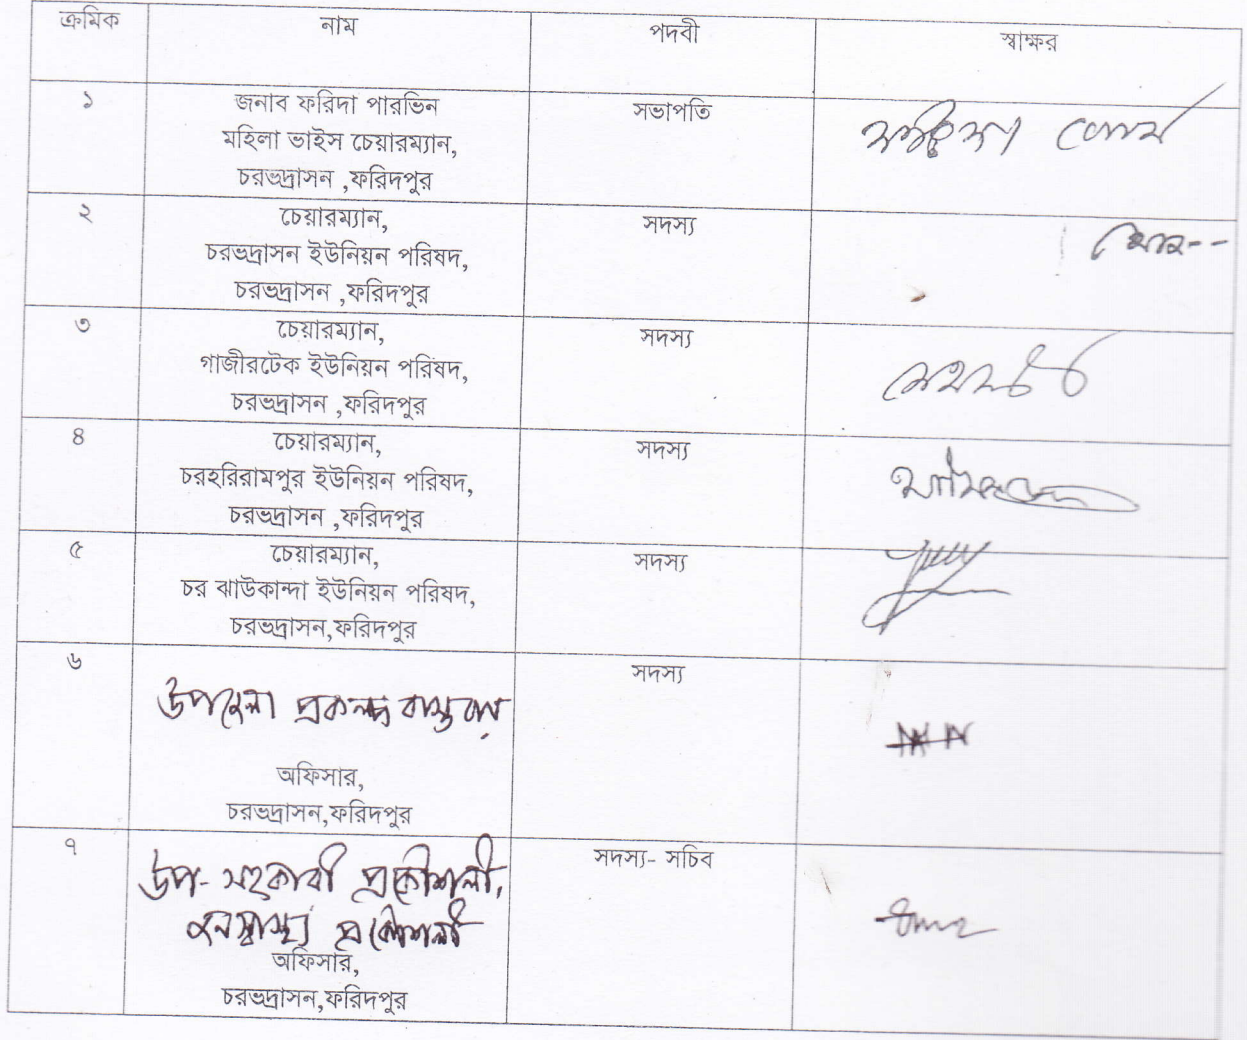 ক্রমিক নাম পদবী স্বাক্ষর
১ জনাব ফরিদা পারভিন সভাপতি
মহিলা ভাইস চেয়ারম্যান,
চরভদ্রাসন ,ফরিদপুর
২ চেয়ারম্যান, সদস্য
চরভদ্রাসন ইউনিয়ন পরিষদ,
চরভদ্রাসন ,ফরিদপুর
৩ চেয়ারম্যান, সদস্য
গাজীরটেক ইউনিয়ন পরিষদ,
চরভদ্রাসন ,ফরিদপুর
৪ চেয়ারম্যান, সদস্য
চরহরিরামপুর ইউনিয়ন পরিষদ,
চরভদ্রাসন ,ফরিদপুর
৫ চেয়ারম্যান, সদস্য
চর ঝাউকান্দা ইউনিয়ন পরিষদ,
চরভদ্রাসন,ফরিদপুর
৬ সদস্য
উপজেলা প্রকল্প বাস্তবায়ন
অফিসার,
চরভদ্রাসন,ফরিদপুর
৭ সদস্য- সচিব
উপ- সহকারী প্রকৌশলী,
জনস্বাস্থ্য প্রকৌশলী
অফিসার,
চরভদ্রাসন,ফরিদপুর